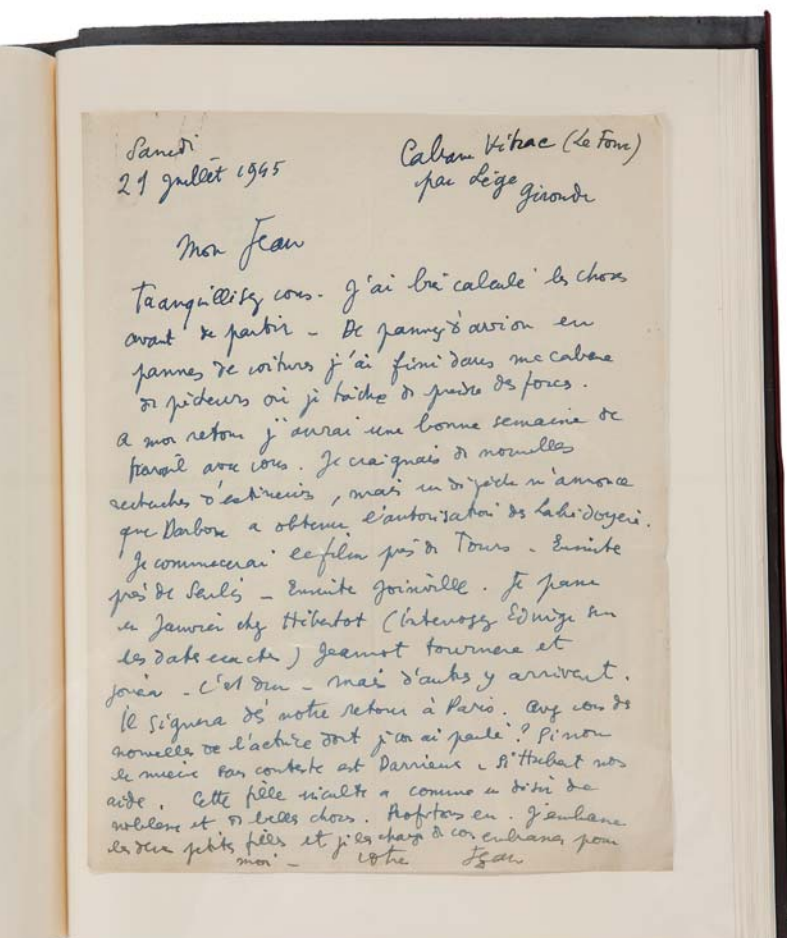 Samedi
21 Juillet 1945
Cabane Vitrac (Le Four)
par Lège
Gironde
Mon Jean
Tranquillisez vous. J'ai bien calculé les choses
avant de partir – De pannes d'avion en
pannes de voitures j'ai fini dans une cabane
de pêcheurs où je tâche de prendre des forces.
A mon retour j'aurai une bonne semaine de
travail avec vous. Je craignais de nouvelles
d', mais une dépêche m'annonce
que Darbon a obtenu l'autorisation des Labédoyère.
Je commencerai le film près de Tours – Ensuite
près de Senlis – Ensuite Joinville. Je passe
en Janvier chez Hébertot (interrogez Edwige sur
les dates exactes) Jeannot tournera et
jouera – C'est dur – mais d'autres y arrivent.
Il signera dès notre retour à Paris. Avez vous des
nouvelles de l'actrice dont j'ai parlé? Sinon
le mieux sans conteste est Darrieux – Si Hubert nous
aide. Cette fille inculte a comme un désir de
noblesse et de belles choses. Profitons en. J'embrasse
les deux petites filles et je les charge de vous embrasser pour
moi – votre Jean